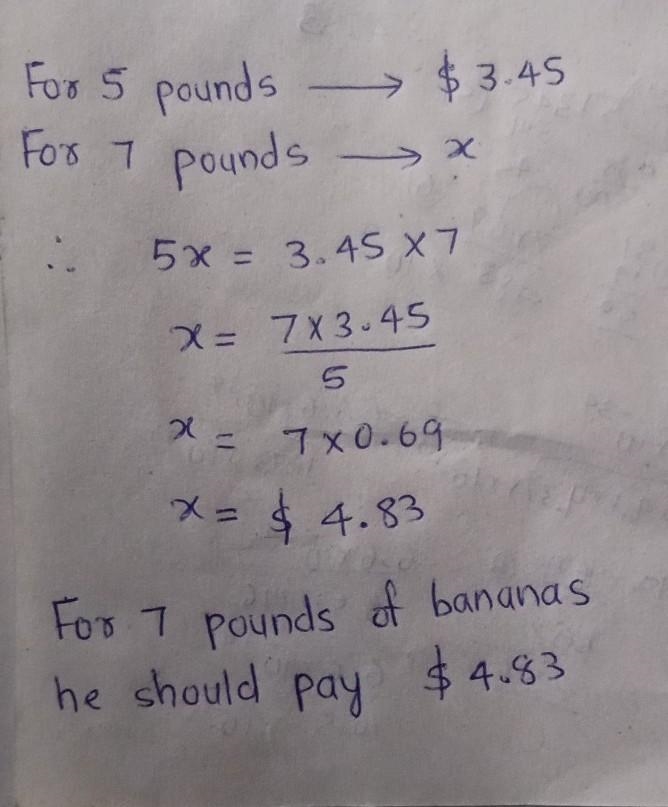 For 5 pounds → $ 3.45
For 7 pounds → x
∴ 5x = 3.45 × 7
x = 7 × 3.45
5
x = 7 × 0.69
x = $ 4.83
For 7 pounds of bananas
he should pay $ 4.83